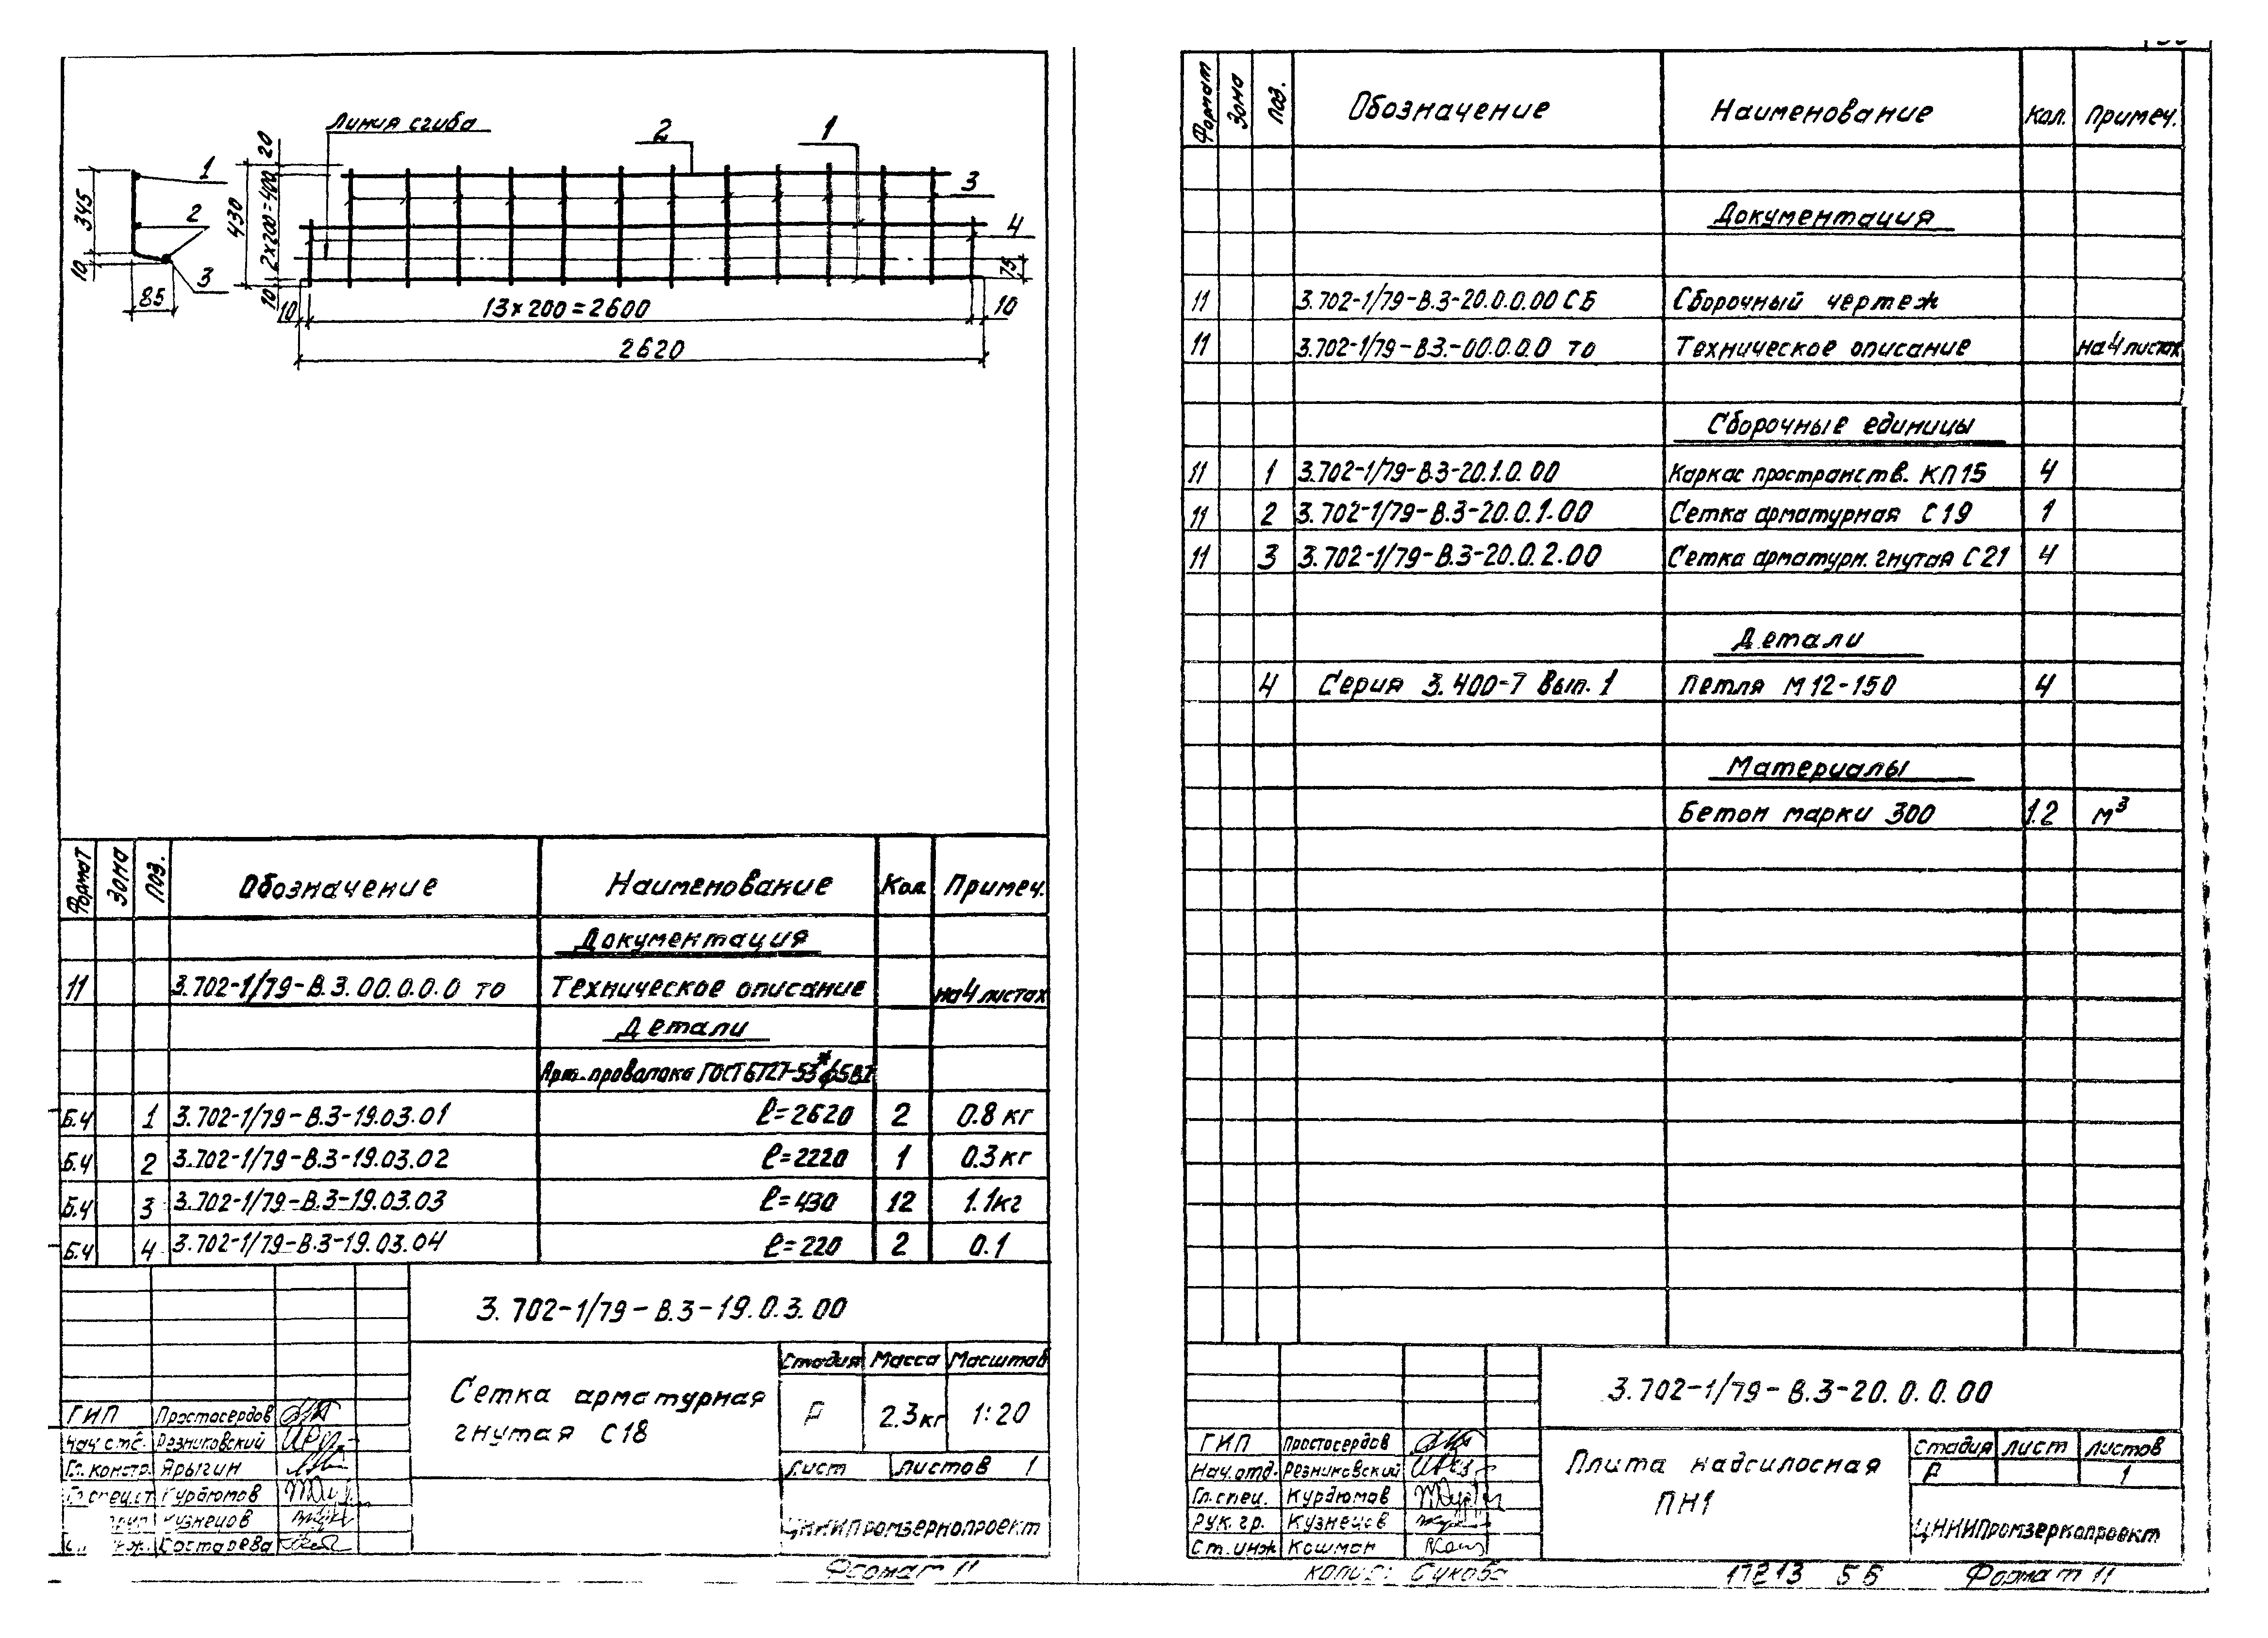 Линия сгиба
2
1
3
4
1
2
3
345
10
85
20
430
2×200=400
10
75
10
13×200=2600
10
2620
Формат Зона Поз. Обозначение Наименование Кол. Примеч.
Документация
11 3.702-1/79-В.3.00.0.0.0 ТО Техническое описание на 4 листах
Детали
Арм. проволока ГОСТ 6727-53* ф5ВI
Б.Ч 1 3.702-1/79-В.3-19.03.01 ℓ=2620 2 0.8 кг
Б.Ч 2 3.702-1/79-В.3-19.03.02 ℓ=2220 1 0.3 кг
Б.Ч 3 3.702-1/79-В.3-19.03.03 ℓ=430 12 1.1кг
Б.Ч 4 3.702-1/79-В.3-19.03.04 ℓ=220 2 0.1
3.702-1/79-В.3-19.0.3.00
Сетка арматурная
гнутая С18
Стадия Масса Масштаб
Р 2.3кг 1:20
Лист Листов 1
ЦНИИПромзернопроект
ГИП Простосердов
Резниковский
Гл. констр. Ярыгин
Гл. спец. ст. Курдюмов
Кузнецов
Костарева
Формат 11
Формат Зона Поз. Обозначение Наименование Кол. Примеч.
Документация
11 3.702-1/79-В.3-20.0.0.00 СБ Сборочный чертеж
11 3.702-1/79-В.3.-00.0.0.0 ТО Техническое описание на 4 листах
Сборочные единицы
11 1 3.702-1/79-В.3-20.1.0.00 Каркас пространств. КП15 4
11 2 3.702-1/79-В.3-20.0.1.00 Сетка арматурная С19 1
11 3 3.702-1/79-В.3-20.0.2.00 Сетка арматурн. гнутая С21 4
Детали
4 Серия 3.400-7 Вып. 1 Петля М12-150 4
Материалы
Бетон марки 300 1.2 м³
3.702-1/79-В.3-20.0.0.00
Плита надсилосная
ПН1
Стадия Лист Листов
Р 1
ЦНИИПромзернопроект
ГИП Простосердов
Нач. отд. Резниковский
Гл. спец. Курдюмов
Рук. гр. Кузнецов
Ст. инж Кошман
17213 56 Формат 11